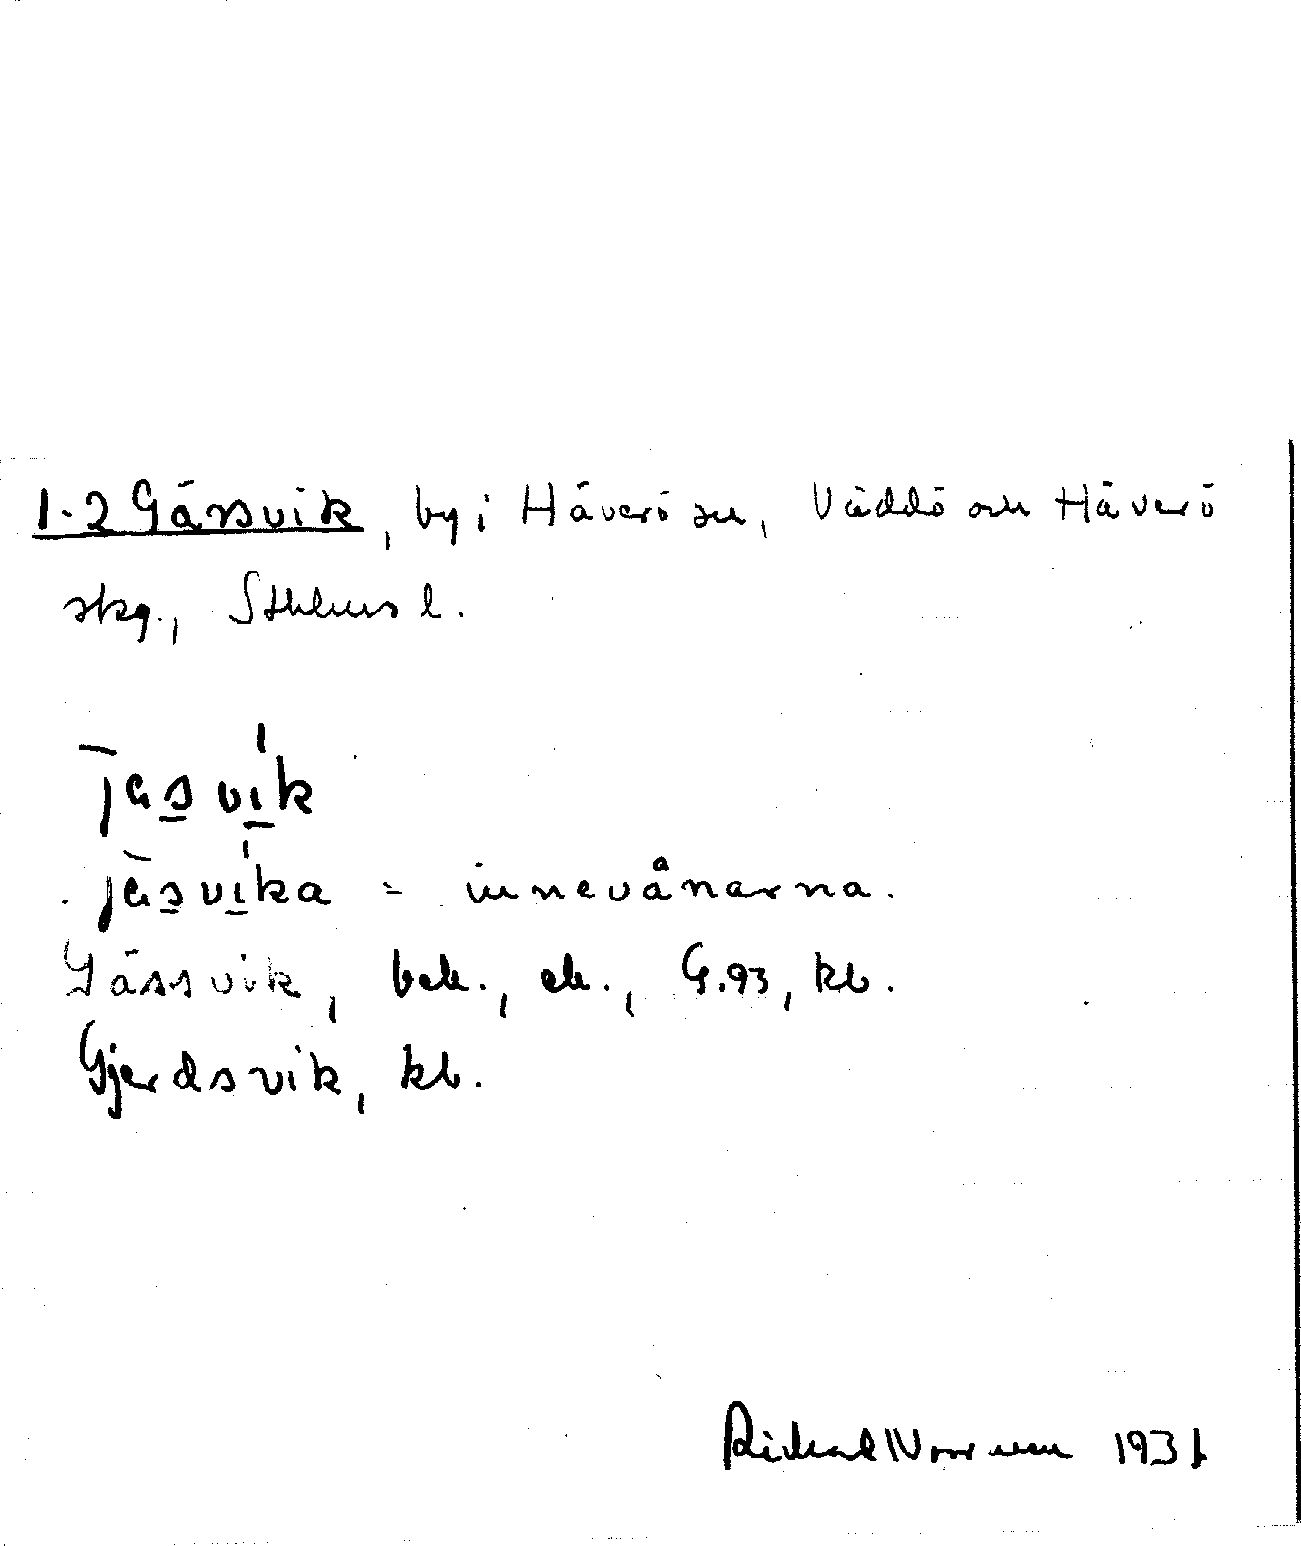 1-2 Gässvik, by i Häverö sn, Väddö och Häverö
skg., Sthlms l.
jäsvik
jäsvika = innevånarna.
Gässvik, bek., ek., G.93, kb.
Gjerdsvik, kb.
Rickard Norrman 1931